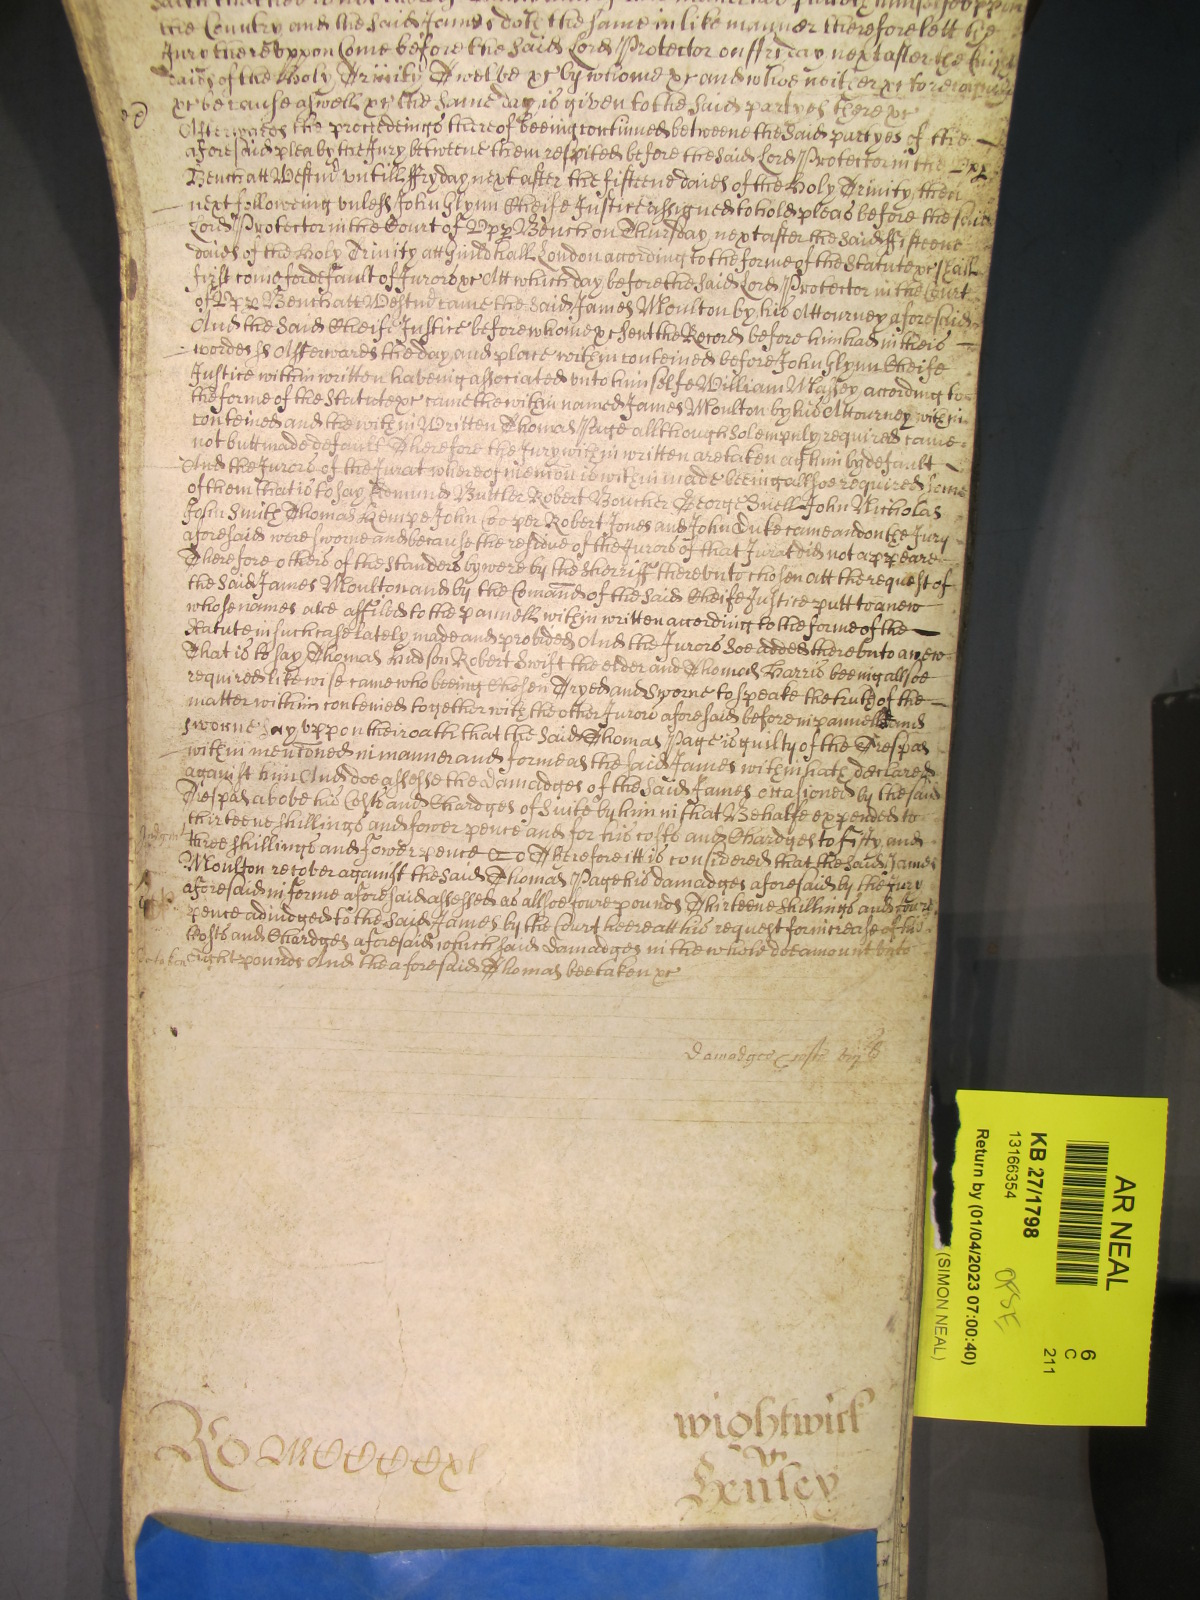 the Country and the said James doth the same in like manner therefore lett the
Jury thereuppon come before the said Lord Protector on ffriday next after the
daies of the Holy Trinity Twelve &c by whome &c and whoe neither &c to recognize
&c because aswell &c the same day is given to the said partyes there &c
Afterwards the proceedeings thereof beeing continued betweene the said partyes of the
aforesaid plea by the Jury betweene them respited before the said Lord Protector in the Upp
Bench att Westmr untill ffryday next after the fifteene daies of the Holy Trinity then
next following unless John Glynn Cheife Justice assigned to hold pleas before the said
Lord Protector in the Court of Upp Bench on Thursday next after the said ffifteene
daies of the Holy Trinity att Guildhall London according to the forme of the Statute &c shall
first come for default of Jurors &c Att which day before the said Lord Protector in the Court
of Upp Bench att Westmr came the said James Moulton by his Attourney aforesaid
And the said Cheife Justice before whome &c sent the Record before him had in theis
wordes ss Afterwards the day and place within conteined before John Glynn Cheife
Justice within written haveing associated unto himselfe William Massey according to
the forme of the Statute &c came the within named James Moulton by his Attourney within
conteined and the within Written Thomas Page allthough solempnly required came
not butt made default Therefore the Jury within written are taken agt him by default
And the Jurors of the Jurat whereof mention is within made beeing allsoe required some
of them that is to say Edmund Buttler Robert Boucher George Snell John Nicholas
John Smith Thomas Kempe John Cooper Robert Jones and John Duke came and on the Jury
aforesaid were sworne and because the residue of the Jurors of that Jurat did not appeare
Therefore others of the standers by were by the Sherriff thereunto chosen att the request of
the said James Moulton and by the Comand of the said Cheife Justice putt to anew
whose names are affiled to the pannell within written according to the forme of the
Statute in such case lately made and provided And the Jurors soe added thereunto anew
That is to say Thomas Hudson Robert Swift the elder and Thomas Harris beeing allsoe
required likewise came who beeing Chosen Tryed and Sworne to speake the truth of the
matter within conteined together with the other Jurors aforesaid before impannelled and
sworne say uppon their oath that the said Thomas Page is guilty of the Trespas
within mencioned in manner and forme as the said James within hath declared
against him And doe assesse the damadges of the said James occasioned by the said
Trespas above his Costs and Chardges of Suite by him in that Behalfe expended to
thirteene shillings and fower pence and for his costs and Chardges to fifty and
three shillings and fower pence Therefore itt is considered that the said James
Moulton recover against the said Thomas Page his damadges aforesaid by the Jury
aforesaid in forme aforesaid assessed as allsoe foure pounds Thirteene shillings and foure
pence adiudged to the said James by the Court heere att his request for increase of his
Costs and Chardges aforesaid which said damadges in the whole doe amount unto
eight pounds And the aforesaid Thomas bee taken &c
damadges Costs viij li
Ro MCCCCxl
wightwick
&
Exulsey
AR NEAL
6
C
211
KB 27/1798
13166354
Return by (01/04/2023 07:00:40)
(SIMON NEAL)